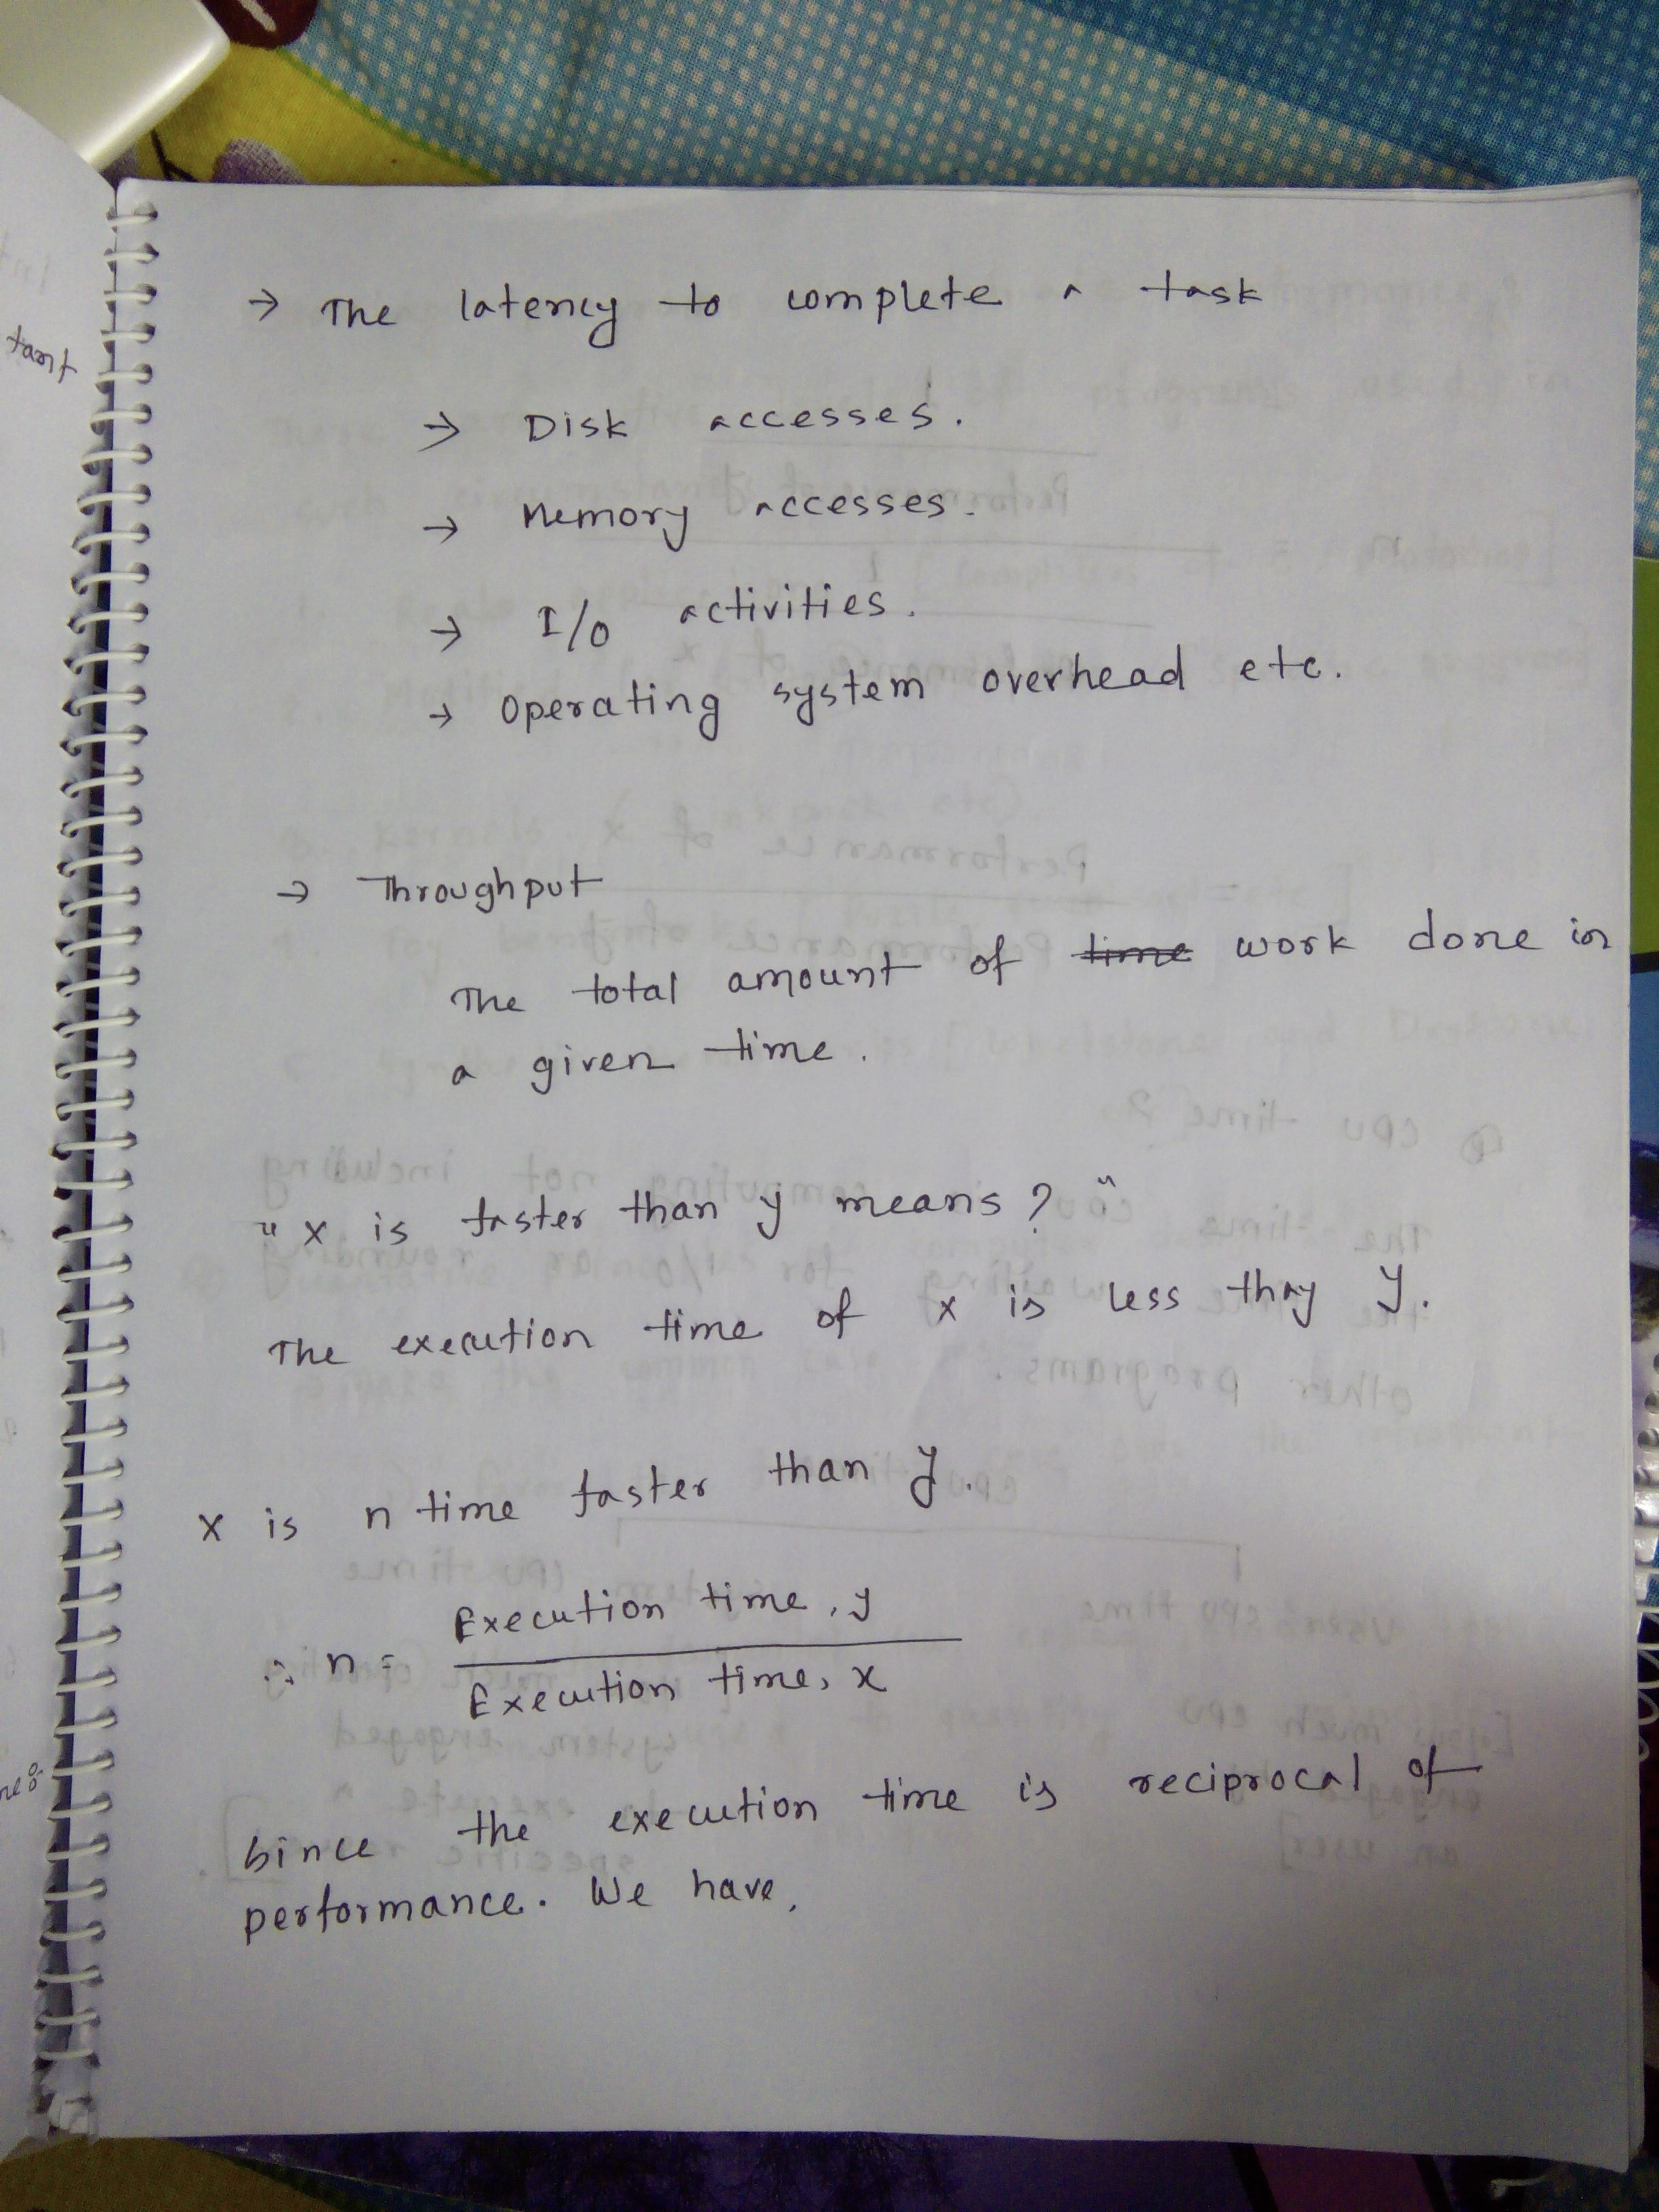 → The latency to complete a task
→ Disk accesses.
→ Memory accesses.
→ I/O activities.
→ Operating system overhead etc.
→ Throughput
The total amount of ~~time~~ work done in
a given time.
"X is faster than y means?"
The execution time of x is less than y.
X is n time faster than y.
∴ n = Execution time, y
Execution time, x
Since the execution time is reciprocal of
performance. We have,